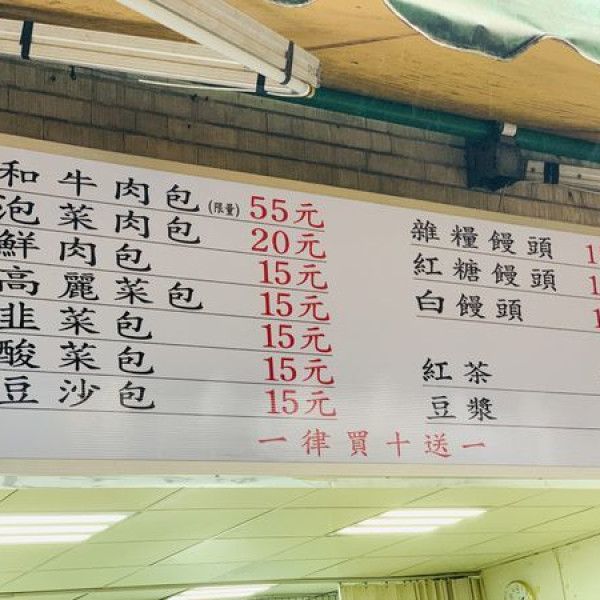 和牛肉包(限量) 55元
泡菜肉包 20元
鮮肉包 15元
高麗菜包 15元
韭菜包 15元
酸菜包 15元
豆沙包 15元
雜糧饅頭
紅糖饅頭
白饅頭
紅茶
豆漿
一律買十送一